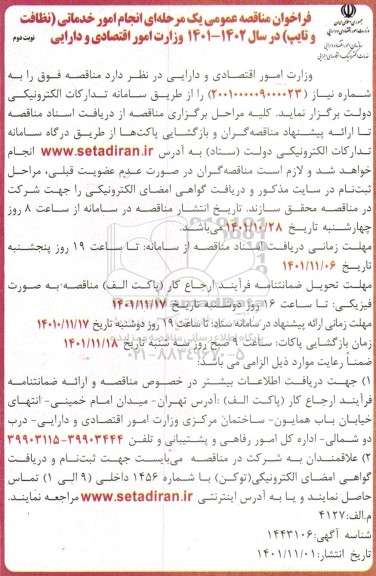 جمهوری اسلامی ایران
وزارت امور اقتصادی و دارایی
فراخوان مناقصه عمومی یک مرحله‌ای انجام امور خدماتی (نظافت
و تایپ) در سال ۱۴۰۲-۱۴۰۱ وزارت امور اقتصادی و دارایی
نوبت دوم
وزارت امور اقتصادی و دارایی در نظر دارد مناقصه فوق را به
شماره نیاز (۲۰۰۱۰۰۰۰۰۹۰۰۰۰۲۳) را از طریق سامانه تدارکات الکترونیکی
دولت برگزار نماید. کلیه مراحل برگزاری مناقصه از دریافت اسناد مناقصه
تا ارائه پیشنهاد مناقصه‌گران و بازگشایی پاکت‌ها از طریق درگاه سامانه
تدارکات الکترونیکی دولت (ستاد) به آدرس www.setadiran.ir انجام
خواهد شد و لازم است مناقصه‌گران در صورت عدم عضویت قبلی، مراحل
ثبت‌نام در سایت مذکور و دریافت گواهی امضای الکترونیکی را جهت شرکت
در مناقصه محقق سازند. تاریخ انتشار مناقصه در سامانه از ساعت ۸ روز
چهارشنبه تاریخ ۱۴۰۱/۱۰/۲۸ می‌باشد.
مهلت زمانی دریافت اسناد مناقصه از سامانه: تا ساعت ۱۹ روز پنجشنبه
تاریخ ۱۴۰۱/۱۱/۰۶
مهلت تحویل ضمانتنامه فرآیند ارجاع کار (پاکت الف) مناقصه به صورت
فیزیکی: تا ساعت ۱۶ روز دوشنبه تاریخ ۱۴۰۱/۱۱/۱۷
مهلت زمانی ارائه پیشنهاد در سامانه ستاد: تا ساعت ۱۹ روز دوشنبه تاریخ ۱۴۰۱۰/۱۱/۱۷
زمان بازگشایی پاکات: ساعت ۹ صبح روز سه شنبه تاریخ ۱۴۰۱/۱۱/۱۸
ضمناً رعایت موارد ذیل الزامی می باشد:
۱) جهت دریافت اطلاعات بیشتر در خصوص مناقصه و ارائه ضمانتنامه
فرآیند ارجاع کار (پاکت الف) :آدرس تهران- میدان امام خمینی- انتهای
خیابان باب همایون- ساختمان مرکزی وزارت امور اقتصادی و دارایی- درب
دو شمالی- اداره کل امور رفاهی و پشتیبانی و تلفن ۳۹۹۰۳۴۴۴-۳۹۹۰۳۱۱۵
۲) علاقمندان به شرکت در مناقصه می‌بایست جهت ثبت‌نام و دریافت
گواهی امضای الکترونیکی(توکن) با شماره ۱۴۵۶ داخلی (۹ الی ۱) تماس
حاصل نمایند و یا به آدرس اینترنتی www.setadiran.ir مراجعه نمایند.
م.الف:۴۱۲۷
شناسه آگهی:۱۴۴۳۱۰۶
تاریخ انتشار:۱۴۰۱/۱۱/۰۱
۰۲۱-۸۸۳۴۹۶۷۰-۵